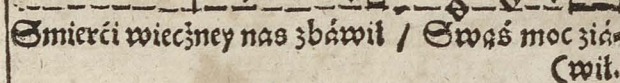 Smierći wiecżney nas zbáwił / Swąś moc ziá-
(wił.